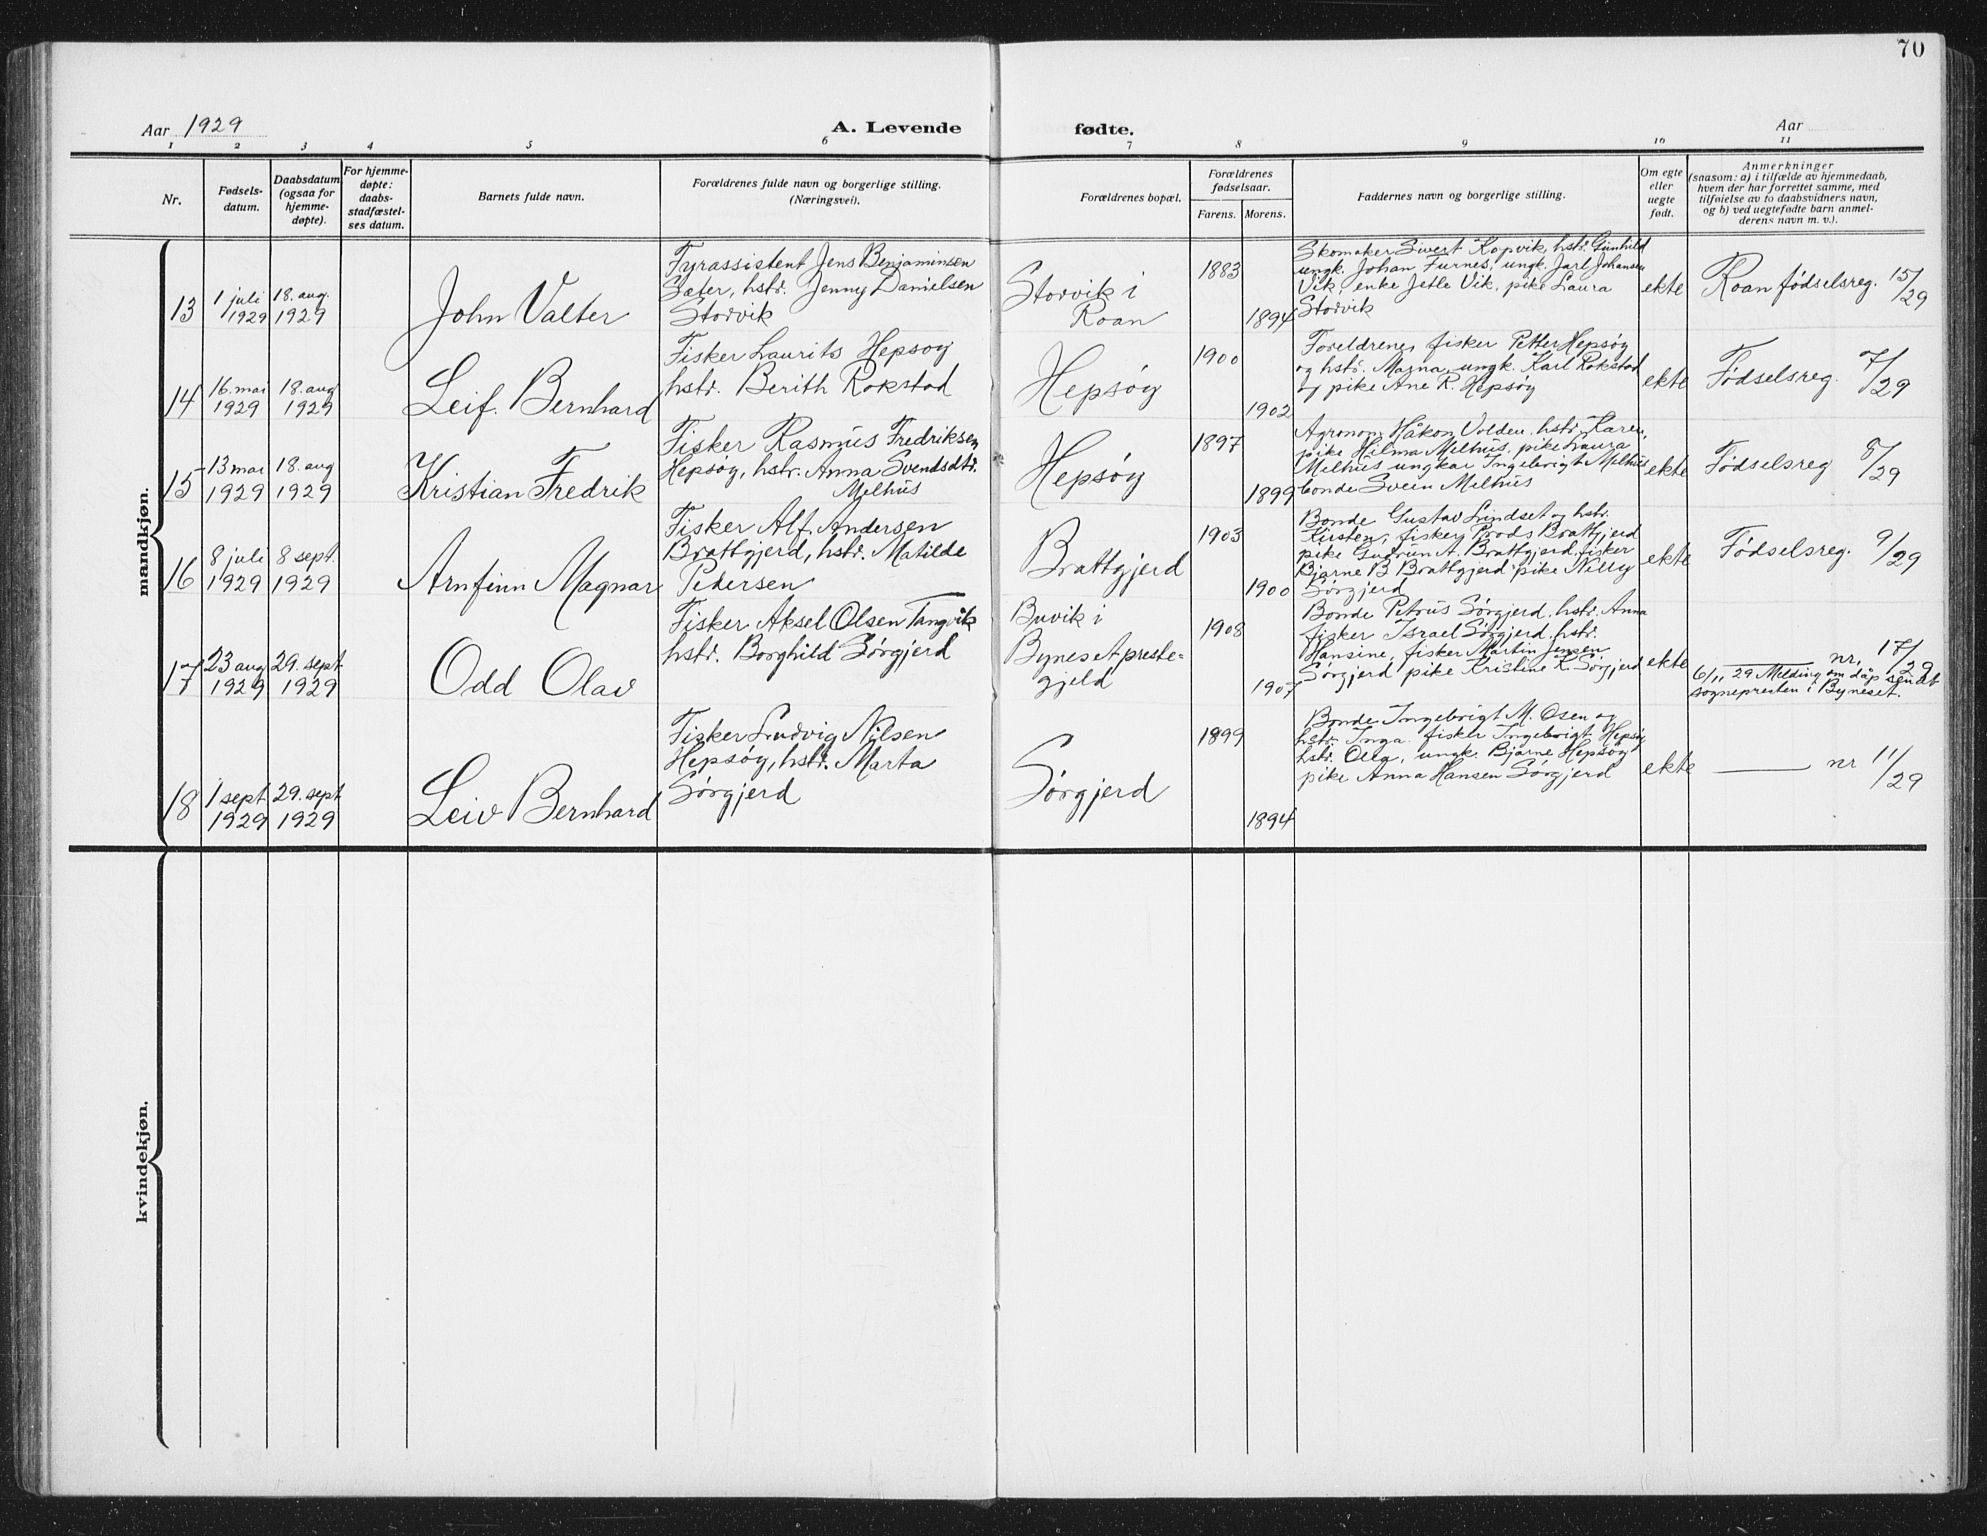 70
Aar 1929
A. Levende
fødte.
Aar
1 2 3 4 5 6 7 8 9 10 11
Nr.
Fødsels-
datum.
Daabsdatum
(ogsaa for
hjemme-
døpte).
For hjemme-
døpte:
daabs-
stadfæstel-
ses datum.
Barnets fulde navn.
Forældrenes fulde navn og borgerlige stilling.
(Næringsvei).
Forældrenes bopæl.
Forældrenes
fødselsaar.
Farens. Morens.
Faddernes navn og borgerlige stilling.
Om egte
eller
uegte
født.
Anmerkninger
(saasom: a) i tilfælde av hjemmedaab,
hvem der har forrettet samme, med
tilføielse av to daabsvidners navn,
og b) ved uegtefødte barn anmel-
derens navn m. v.).
mandkjøn.
13
1 juli
1929
18. aug.
1929
John Valter
Fyrassistent Jens Benjaminsen
Sæter, hstr. Jenny Danielsen
Storvik
Storvik i
Roan
1883
1894
Skomaker Sivert Kopvik, hstr. Gunhild
ungk. Johan Furnes, ungk. Jarl Johansen
Vik, enke Jetle Vik, pike Laura
Storvik
ekte
Roan fødselsreg. 15/29
14
16. mai
1929
18. aug
1929
Leif. Bernhard
Fisker Laurits Hepsøy
hstr. Berith Rokstad
Hepsøy
1900
1902
Foreldrene, fisker Petter Hepsøy
og hstr. Magna, ungk. Karl Rokstad
og pike Ane R. Hepsøy
ekte
Fødselsreg. 7/29
15
13 mai
1929
18. aug
1929
Kristian Fredrik
Fisker Rasmus Fredriksen
Hepsøy, hstr. Anna Svendsdtr.
Melhus
Hepsøy
1897
1899
Agronom Håkon Volden, hstr. Karen,
pike Hilma Melhus, pike Laura
Melhus ungkar Ingebrigt Melhus
bonde Svein Melhus
ekte
Fødselsreg 8/29
16
8 juli
1929
8 sept.
1929
Arnfinn Magnar
Fisker Alf. Andersen
Brattgjerd, hstr. Matilde
Pedersen
Brattgjerd
1903
1900
Bonde Gustav Lindset og hstr.
Kirsten, fisker Brattgjerd
pike Gudrun A. Brattgjerd, fisker
Bjarne B Brattgjerd pike Nelly
Sørgjerd
ekte
Fødselsreg. 9/29
17
23 aug
1929
29. sept
1929
Odd Olav
Fisker Aksel Olsen Tangvik
hstr. Borghild Sørgjerd
Buvik i
Byneset preste-
gjeld
1908
1907
Bonde Petrus Sørgjerd, hstr. Anna
fisker Israel Sørgjerd, hstr.
Hansine, fisker Martin Jensen
Sørgjerd pike Kristine K. Sørgjerd
ekte
nr. 17/29
6/11 29 Melding om dåp sendt
sognepresten i Byneset.
18
1 sept
1929
29. sept
1929
Leiv Bernhard
Fisker Ludvig Nilsen
Hepsøy, hstr. Marta
Sørgjerd
Sørgjerd
1899
1894
Bonde Ingebrigt M. Osen og
hstr. Inga. fisker Ingebrigt Hepsøy
hstr. Olea, ungk. Bjarne Hepsøy
pike Anna Hansen Sørgjerd
ekte
nr 11/29
kvindekjøn.